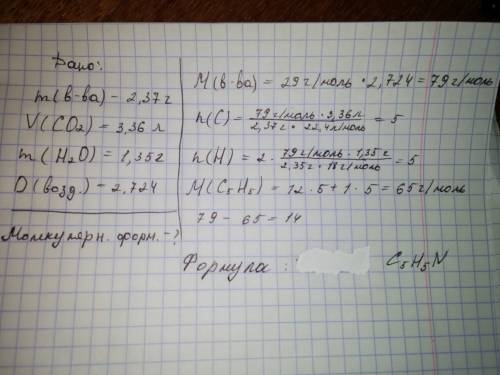 Дано:
m(в-ва) - 2,37г
V(CO₂) = 3,36 л
m(H₂O) = 1,35г
D(возд.) - 2,724
Молкулерн. форм. - ?
M(в-ва) = 29г/моль · 2,724 = 79г/моль
n(C) = 79г/моль · 3,36л / 2,37г · 22,4л/моль = 5
n(H) = 2 · 79г/моль · 1,35г / 2,35г · 18г/моль = 5
M(C₅H₅) = 12 · 5 + 1 · 5 = 65г/моль
79 - 65 = 14
Формула : C₅H₅N